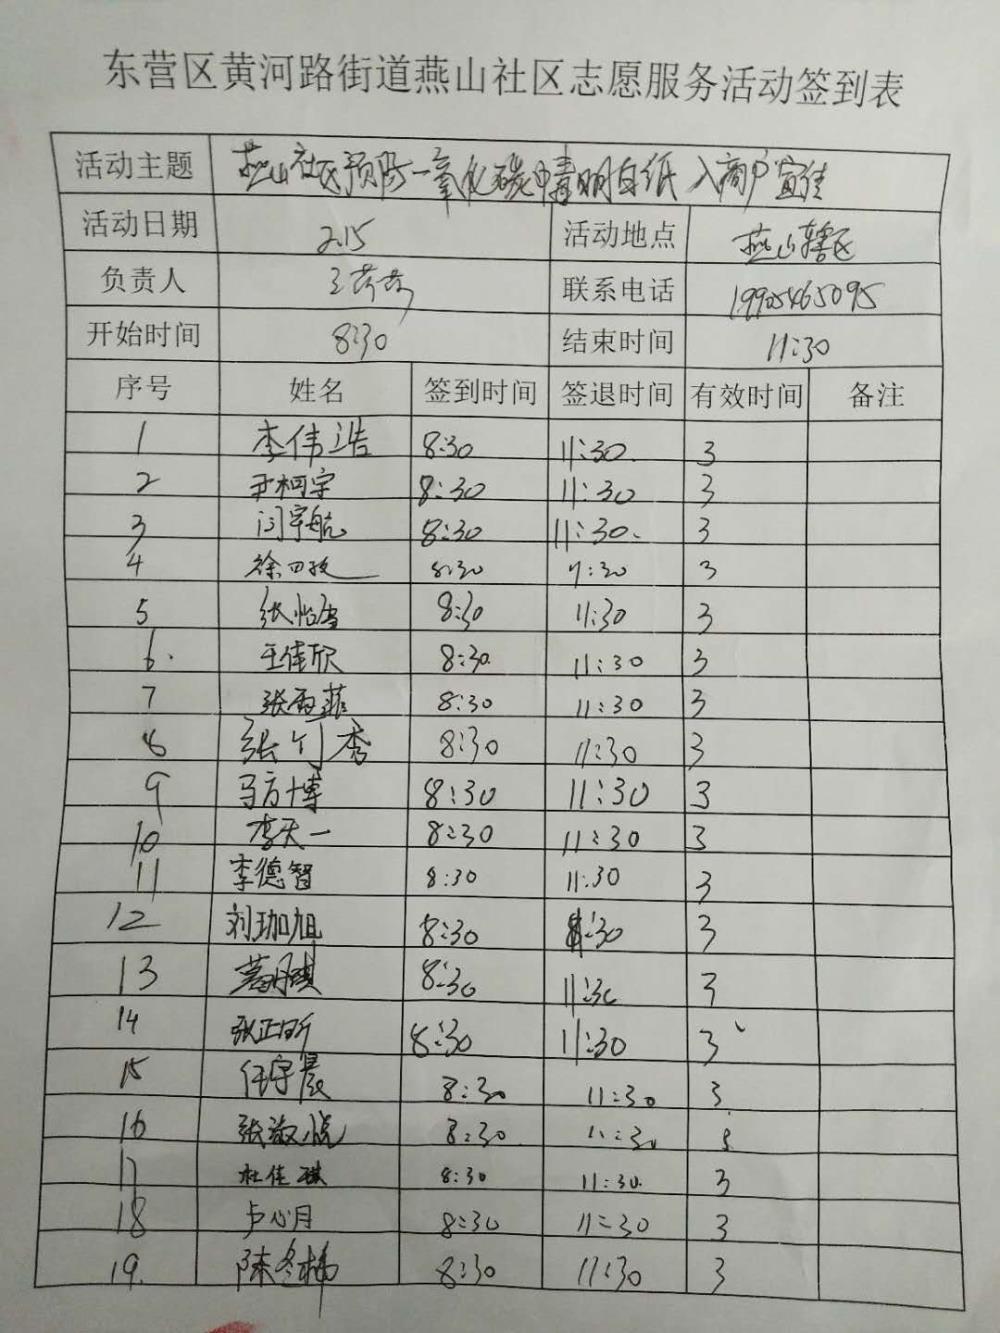 东营区黄河路街道燕山社区志愿服务活动签到表
活动主题 燕山社区预防一氧化碳中毒明白纸入商户宣传
活动日期 2.15 活动地点 燕山辖区
负责人 王 联系电话 19905465095
开始时间 8:30 结束时间 11:30
序号 姓名 签到时间 签退时间 有效时间 备注
1 李伟浩 8:30 11:30 3
2 尹柯宇 8:30 11:30 3
3 闫宇航 8:30 11:30 3
4 徐 8:30 11:30 3
5 张怡雪 8:30 11:30 3
6 王佳欣 8:30 11:30 3
7 张雨菲 8:30 11:30 3
8 张 秀 8:30 11:30 3
9 马方博 8:30 11:30 3
10 李天一 8:30 11:30 3
11 李德智 8:30 11:30 3
12 刘珈旭 8:30 11:30 3
13 8:30 11:30 3
14 张正昕 8:30 11:30 3
15 任宇晨 8:30 11:30 3
16 张 悦 8:30 11:30 3
17 杜佳琪 8:30 11:30 3
18 卢心月 8:30 11:30 3
19 陈冬梅 8:30 11:30 3